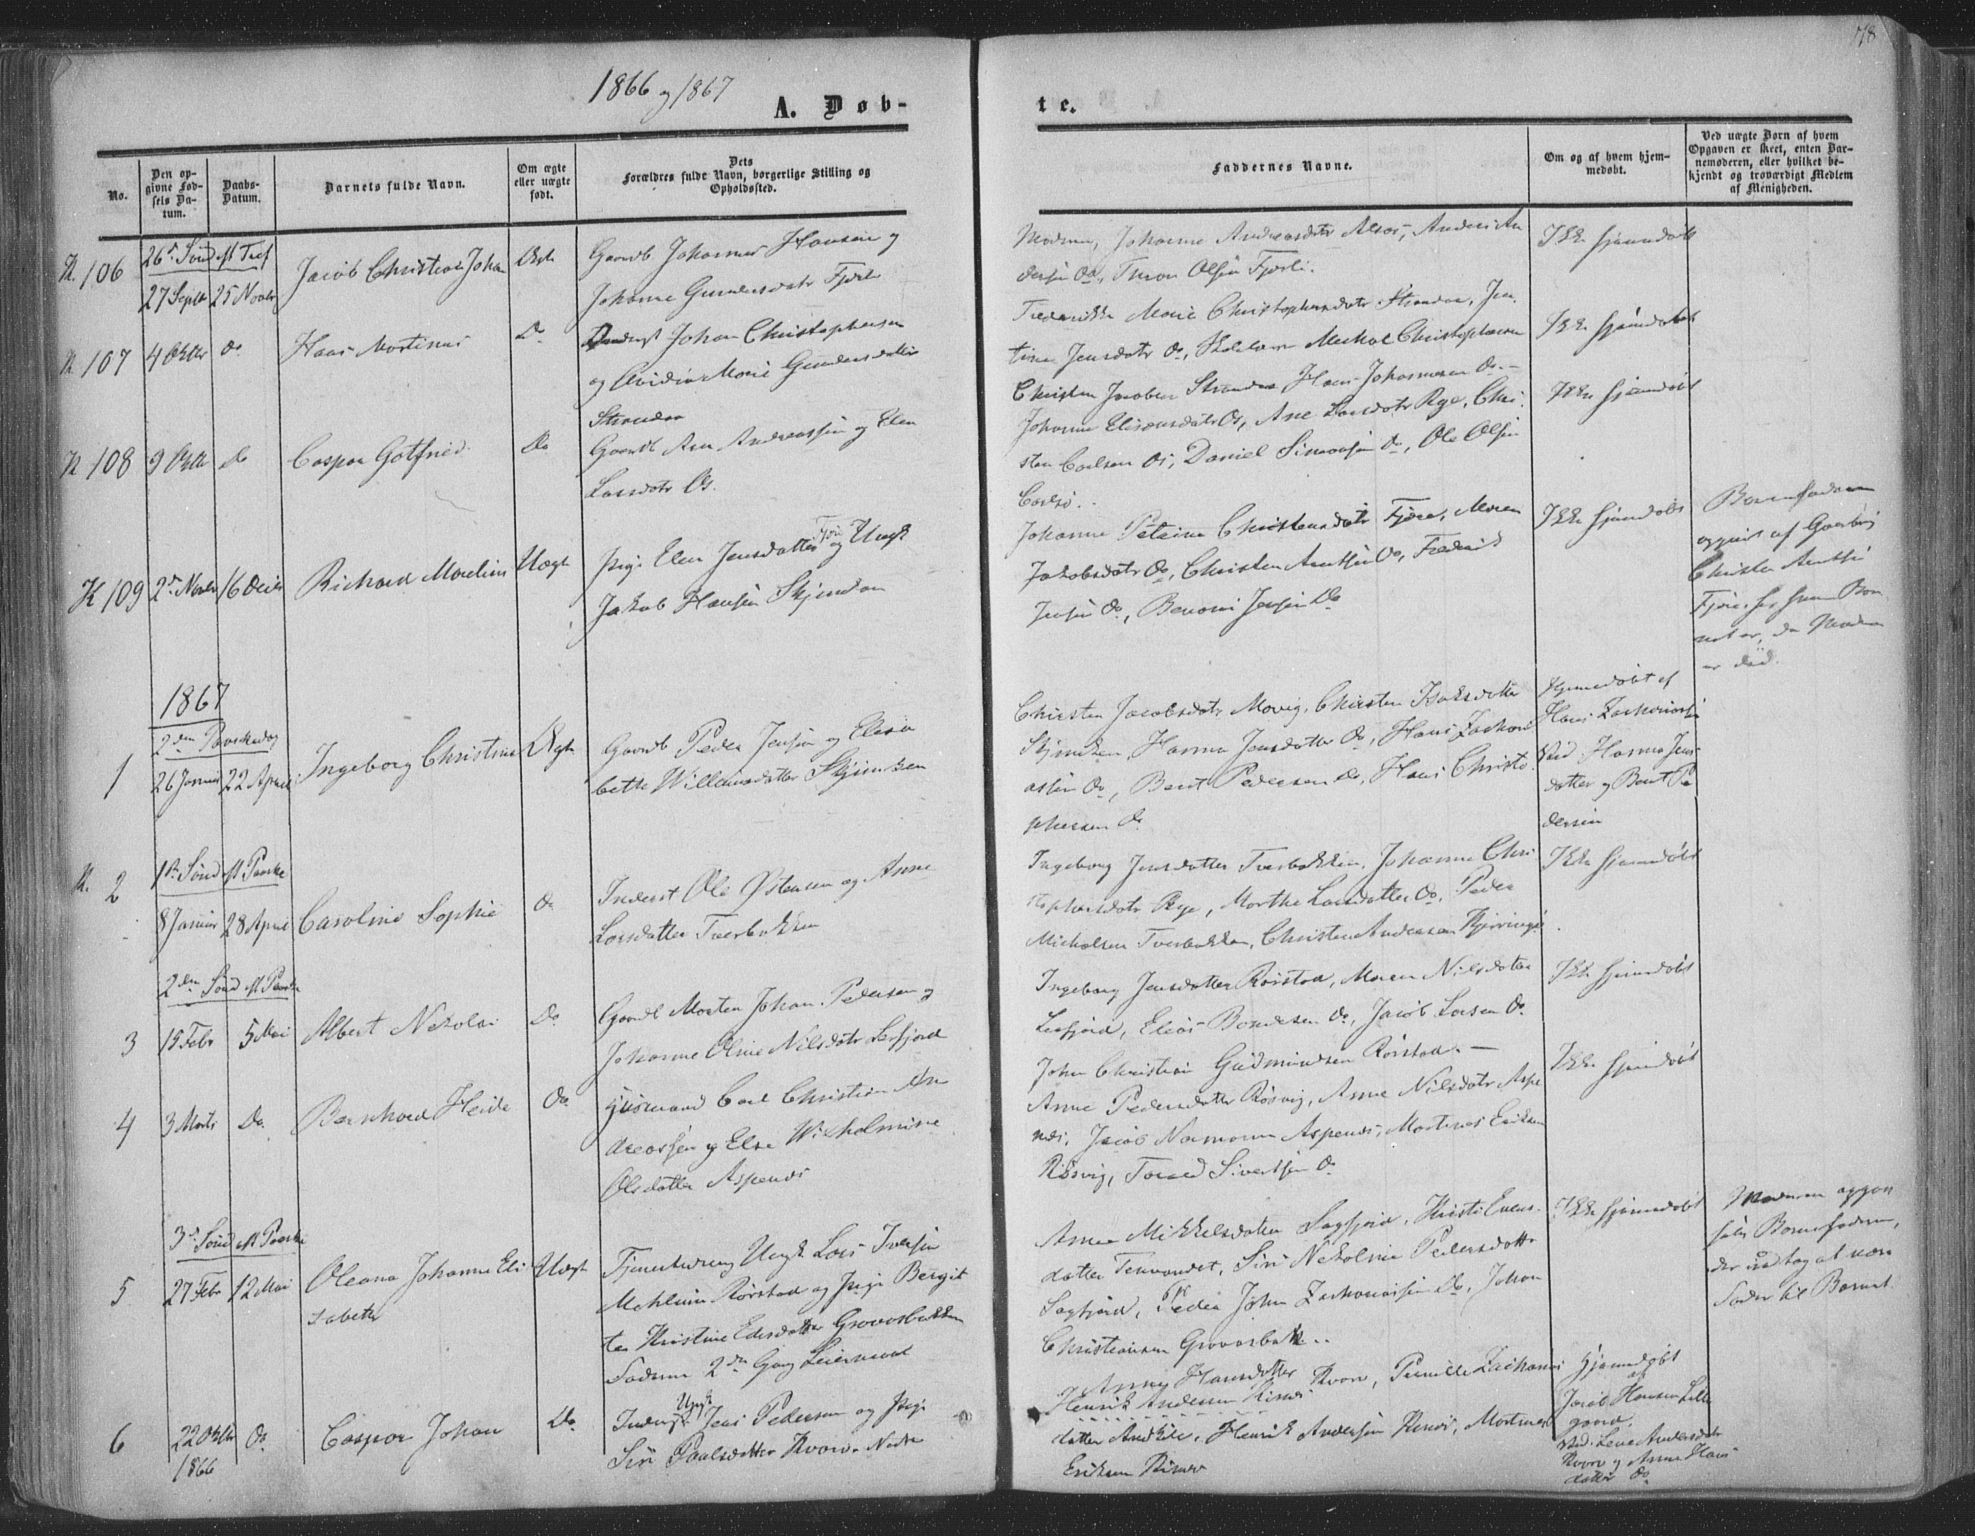 78
1866 og 1867
A. Døb-
te.
No.
Den op-
givne Fød-
sels Da-
tum.
Daabs-
Datum.
Barnets fulde Navn.
Om ægte
eller uægte
født.
Dets
Forældres fulde Navn, borgerlige Stilling og
Opholdssted.
Faddernes Navne.
Om og af hvem hjem-
medøbt.
Ved uægte Børn af hvem
Opgaven er skeet, enten Bar-
nemoderen, eller hvilket be-
kjendt og troværdigt Medlem
af Menigheden.
K. 106
26de Sønd. e. Tref
27 Septr 25 Novbr
Jacob Christian Johan
Ægte
Gaardb. Johannes Hansen og
Johanne Gundersdatr Fjerli
Moderen, Johanne Andreasdatr Alsos, Anders An
dersen Do, Thron Olsen Fjerli.
Ikke hjemmdøbt
K 107
4 Octbr do
Hans Martinus
Do
Johan Christophersen
og Marie Gundersdatter
Strandaa
Frederikke Marie Christophersdatr Strandaa, Jen
tine Jensdatr Do, Mechal Christophersen
Christen Jacobsen Strandaa Hans Johannesen Do. —
Ikke hjemmdøbt
K 108
9 Octbr Do
Caspar Gotfried
Do
Gaardb. Arn Andreassen og Elen
Larsdatr Os.
Johanne Eliseusdatr Os, Ane Larsdatr Rye, Chri
sten Carlsen Os, Daniel Simonsen Do, Ole Olsen
Ikke hjemmdøbt
K 109
2den Novbr 16 Decbr
Richard Mardius
Uægte
Pige Elen Jensdatter Fjære og Ungk
Jakob Hansen Skjendan
Johanne Petrine Christensdatr Fjære, Maren
Jakobsdatr Do, Christen Arntsen Do, Fredrik
Jensen Do, Benoni Jensen Do
Ikke hjemmdøbt
Barnefaderen
opgivet af Gaardbr
Christen Arntsen
Fjære, hos hvem Bar
net er, da Moderen
er død.
1867
2den Paaskedag
1
26 Januar 22 April
Ingeborg Christine
Ægte
Gaardb Peder Jensen og Elisa
beth Willumsdatter
Chirsten Jacobsdatr Movig, Chirsten Isaksdatter
Hanna Jensdatter Do, Hans Zachari
assen Do, Bent Pedersen Do, Hans Christo
phersen Do
Hjemmedøbt af
Hans Zachariassen
Vid. Hanna Jens
datter og Bent Pe
dersen
K. 2
1ste Sønd e Paaske
8 Januar 28 April
Caroline Sophie
Do
Inderst Ole Østensen og Anne
Larsdatter Tverbakken
Ingeborg Jensdatter Tverbakken, Johanne Chri
stophersdatr Rye, Marthe Larsdatter Do, Peder
Michelsen Tverbakken, Christen Andersen
Ikke hjemmdøbt
2den Sønd e Paaske
3
15 Febr 5 Mai
Albert Nikolai
Do
Gaardb Morten Johan Pedersen og
Johanne Oline Nilsdatr Lerfjord
Ingeborg Jensdatter Rørstad, Maren Nilsdatter
Lerfjord, Elias Do, Jacob Larsen Do
John Christian Gudmundsen Rørstad. —
Ikke hjemmdøbt
4
3 Marts Do
Bernhard Heide
Do
Huusmand Carl Christian An
dreassen og Else Wilhelmine
Olsdatter Aspenes
Anne Pedersdatter Røsvig, Anne Nilsdatr Aspe
nes, Jacob Normann Aspenes, Martines Eriksen
Røsvig, Tomas Sivertsen Do
Ikke hjemmdøbt
3die Sønd e Paaske
5
27 Febr 12 Mai
Oleana Johanne Eli
sabeth
Uægte
Tjenestedreng Ungk Lars Iversen
Rørstad og Pige Bergit
te Kristine Edisdatter Grovasbakken
Faderens 2den Gang Leiermaal
Anne Mikkelsdatter Sagfjord, Kirsti Evens
datter Tennvandet, Siri Nikoline Pedersdatter
Sagfjord, Peder John Zachariassen Do, Johan
Christiansen Grovasbak..
Ikke hjemmdøbt
Moderen opgav
selv Barnefaderen,
der vedtog at være
Fader til Barnet
6
22 Octbr Do
1866
Caspar Johan
Do
Ungk Jens Pedersen og Pige
Siri Paulsdatter Kvarv Nedre
Anne Hansdatter Kvarv, Pernille Zacharias
Henrik Andersen Kines
datter Do, Henrik Andersen Kines, Martines
Eriksen Kines
Hjemmdøbt
af
Jacob Hansen Lille
gaard.
Vid. Lene Andersdatr
Kvarv og Anne Hans
datter Do